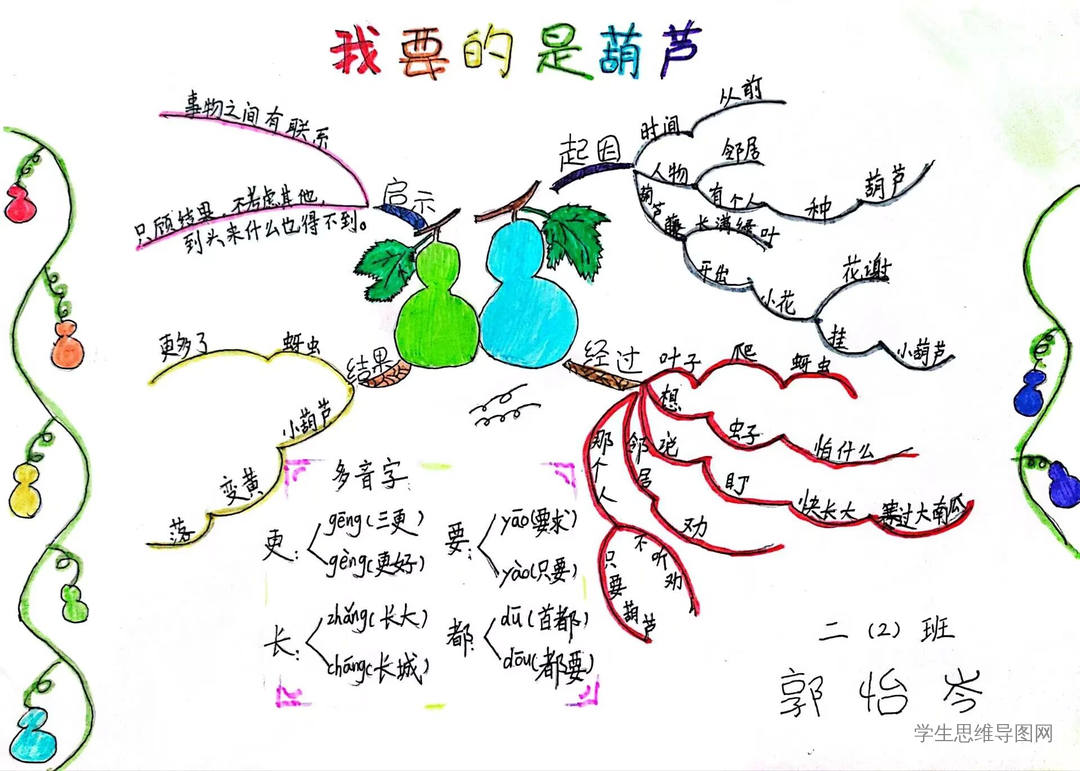 我要的是葫芦
事物之间有联系
启示
只顾结果,不考虑其他,
到头来什么也得不到。
起因
时间
从前
人物
邻居
有个人
种
葫芦
葫芦藤
长满绿叶
开出
小花
花谢
挂
小葫芦
经过
叶子
爬
蚜虫
想
虫子
怕什么
说
盯
快长大
赛过大南瓜
邻居
劝
那个人
不听劝
只要葫芦
结果
蚜虫
更多了
小葫芦
变黄
落
多音字:
更:
gēng(三更)
gèng(更好)
要:
yāo(要求)
yào(只要)
长:
zhǎng(长大)
cháng(长城)
都:
dū(首都)
dōu(都要)
二(2)班
郭怡岑
学生思维导图网